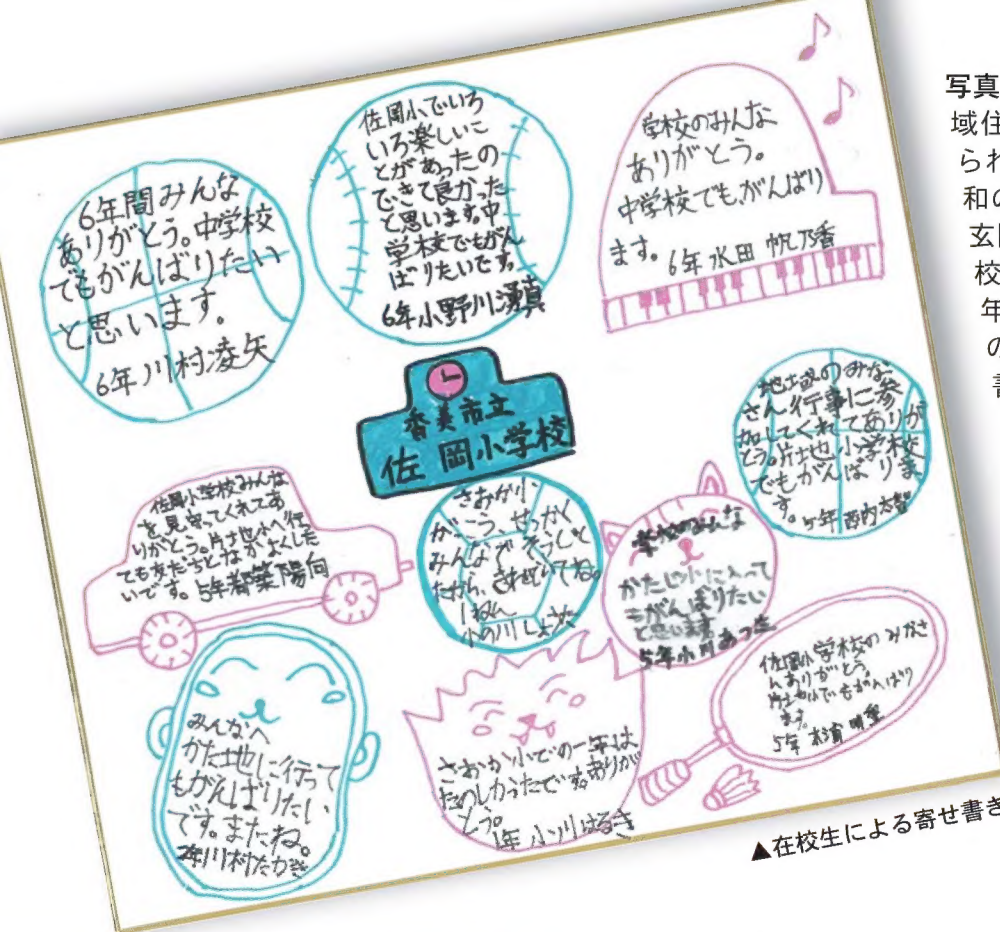 6年間みんな
ありがとう。中学校
でもがんばりたい
と思います。
6年川村凌矢
佐岡小でいろ
いろ楽しいこ
とがあったの
できて良かった
と思います。中
学校でもがん
ばりたいです。
6年小野川湧真
学校のみんな
ありがとう。
中学校でも、がんばり
ます。6年水田 帆乃香
香美市立
佐岡小学校
地域のみな
さん行事に参
加してくれてありが
とう。片地小学校
でもがんばりま
す。5年西内太智
佐岡小学校みんな
を見守ってくれてあ
りがとう。片地小へ行
ても友だちとなかよくした
いです。5年都築陽向
さおか小
がっこう、せっかく
みんなで
たから、
1ねん
小の川しょうた
学校のみんな
かたじ小に入って
もがんばりたい
と思います
5年小川あつき
佐岡小学校のみなさ
んありがとう。
片地小でもがんばり
ます。
5年
みんなへ
かた地に行って
もがんばりたい
です。またね。
2年川村たかき
さおか小での一年は
たのしかったです。ありが
とう。
1年 小川はるき
▲在校生による寄せ書き
写真
域住
られ
和の
玄関
校
年
の
書